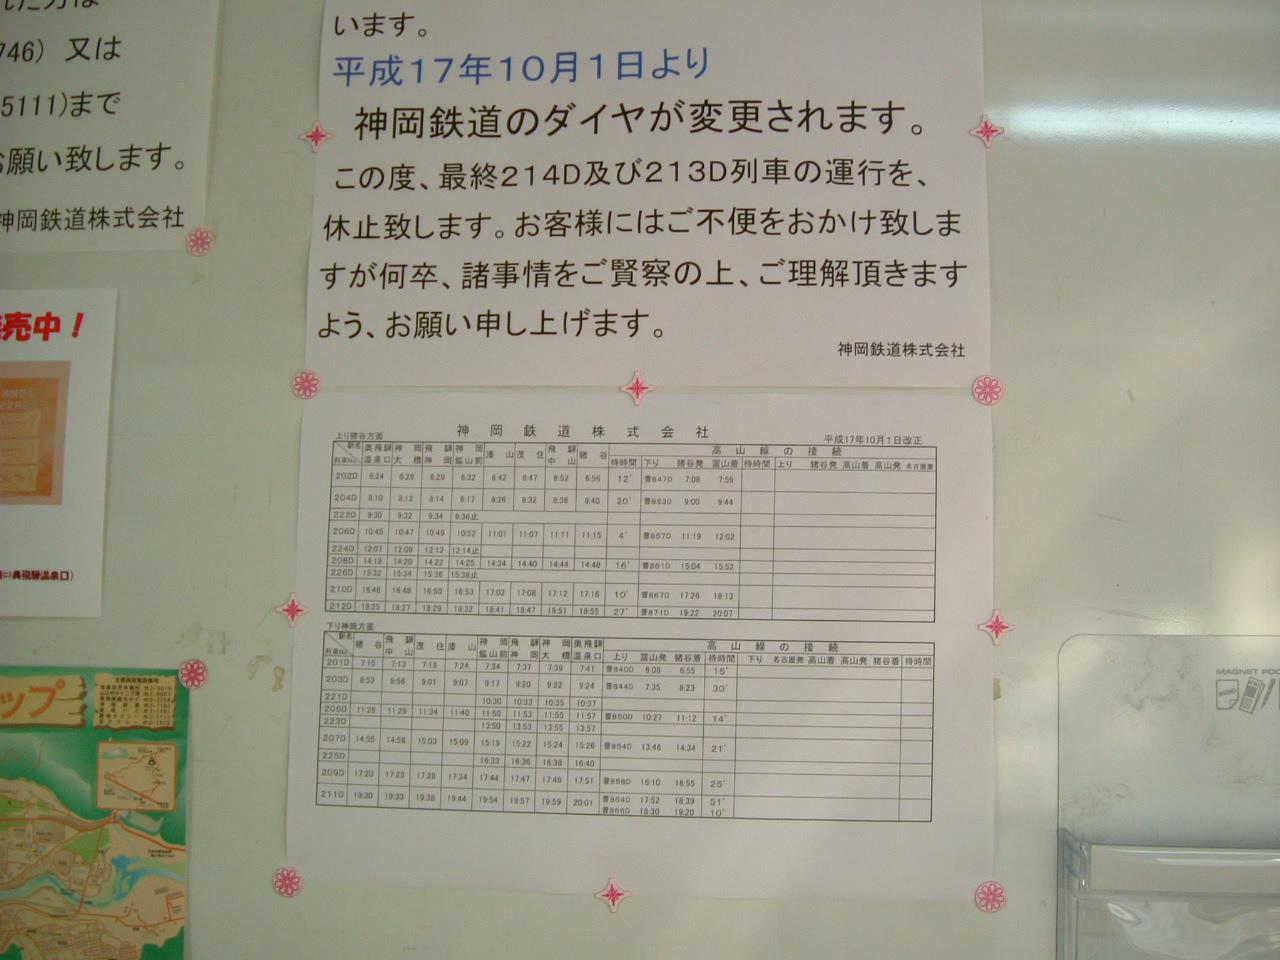 れた方は
746) 又は
5111)まで
お願い致します。
神岡鉄道株式会社
います。
平成17年10月1日より
神岡鉄道のダイヤが変更されます。
この度、最終214D及び213D列車の運行を、
休止致します。お客様にはご不便をおかけ致しま
すが何卒、諸事情をご賢察の上、ご理解頂きます
よう、お願い申し上げます。
神岡鉄道株式会社
売中！
奥飛騨温泉口)
ップ
神岡鉄道株式会社
上り猪谷方面
平成17年10月1日改正
駅名 列車No 奥飛騨温泉口 神岡大橋 飛騨神岡 神岡鉱山前 漆山 茂住 飛騨中山 猪谷 高山線の接続
待時間 下り 猪谷発 富山着 待時間 上り 猪谷発 高山着 高山発 名古屋着
202D 6:24 6:26 6:29 6:32 6:42 6:47 6:52 6:56 12' 普847D 7:08 7:59
204D 8:10 8:12 8:14 8:17 8:26 8:32 8:36 8:40 20' 普853D 9:00 9:44
222D 9:30 9:32 9:34 9:36止
206D 10:45 10:47 10:49 10:52 11:01 11:07 11:11 11:15 4' 普857D 11:19 12:02
224D 12:07 12:09 12:12 12:14止
208D 14:18 14:20 14:22 14:25 14:34 14:40 14:44 14:48 16' 普861D 15:04 15:52
226D 15:32 15:34 15:36 15:38止
210D 16:46 16:48 16:50 16:53 17:02 17:08 17:12 17:16 10' 普867D 17:26 18:13
212D 18:25 18:27 18:29 18:32 18:41 18:47 18:51 18:55 27' 普871D 19:22 20:07
下り神岡方面
駅名 列車No 猪谷 飛騨中山 茂住 漆山 神岡鉱山前 飛騨神岡 神岡大橋 奥飛騨温泉口 高山線の接続
上り 富山発 猪谷着 待時間 下り 名古屋発 高山着 高山発 猪谷着 待時間
201D 7:10 7:13 7:18 7:24 7:34 7:37 7:39 7:41 普840D 6:08 6:55 15'
203D 8:53 8:56 9:01 9:07 9:17 9:20 9:22 9:24 普844D 7:35 8:23 30'
221D 10:30 10:33 10:35 10:37
205D 11:26 11:29 11:34 11:40 11:50 11:53 11:55 11:57 普850D 10:27 11:12 14'
223D 13:50 13:53 13:55 13:57
207D 14:55 14:58 15:03 15:09 15:19 15:22 15:24 15:26 普854D 13:46 14:34 21'
225D 16:33 16:36 16:38 16:40
209D 17:20 17:23 17:28 17:34 17:44 17:47 17:49 17:51 普858D 16:10 16:55 25'
211D 19:30 19:33 19:38 19:44 19:54 19:57 19:59 20:01 普864D 17:52 18:39 51'
普866D 18:30 19:20 10'
MAGNET POC
MEMO